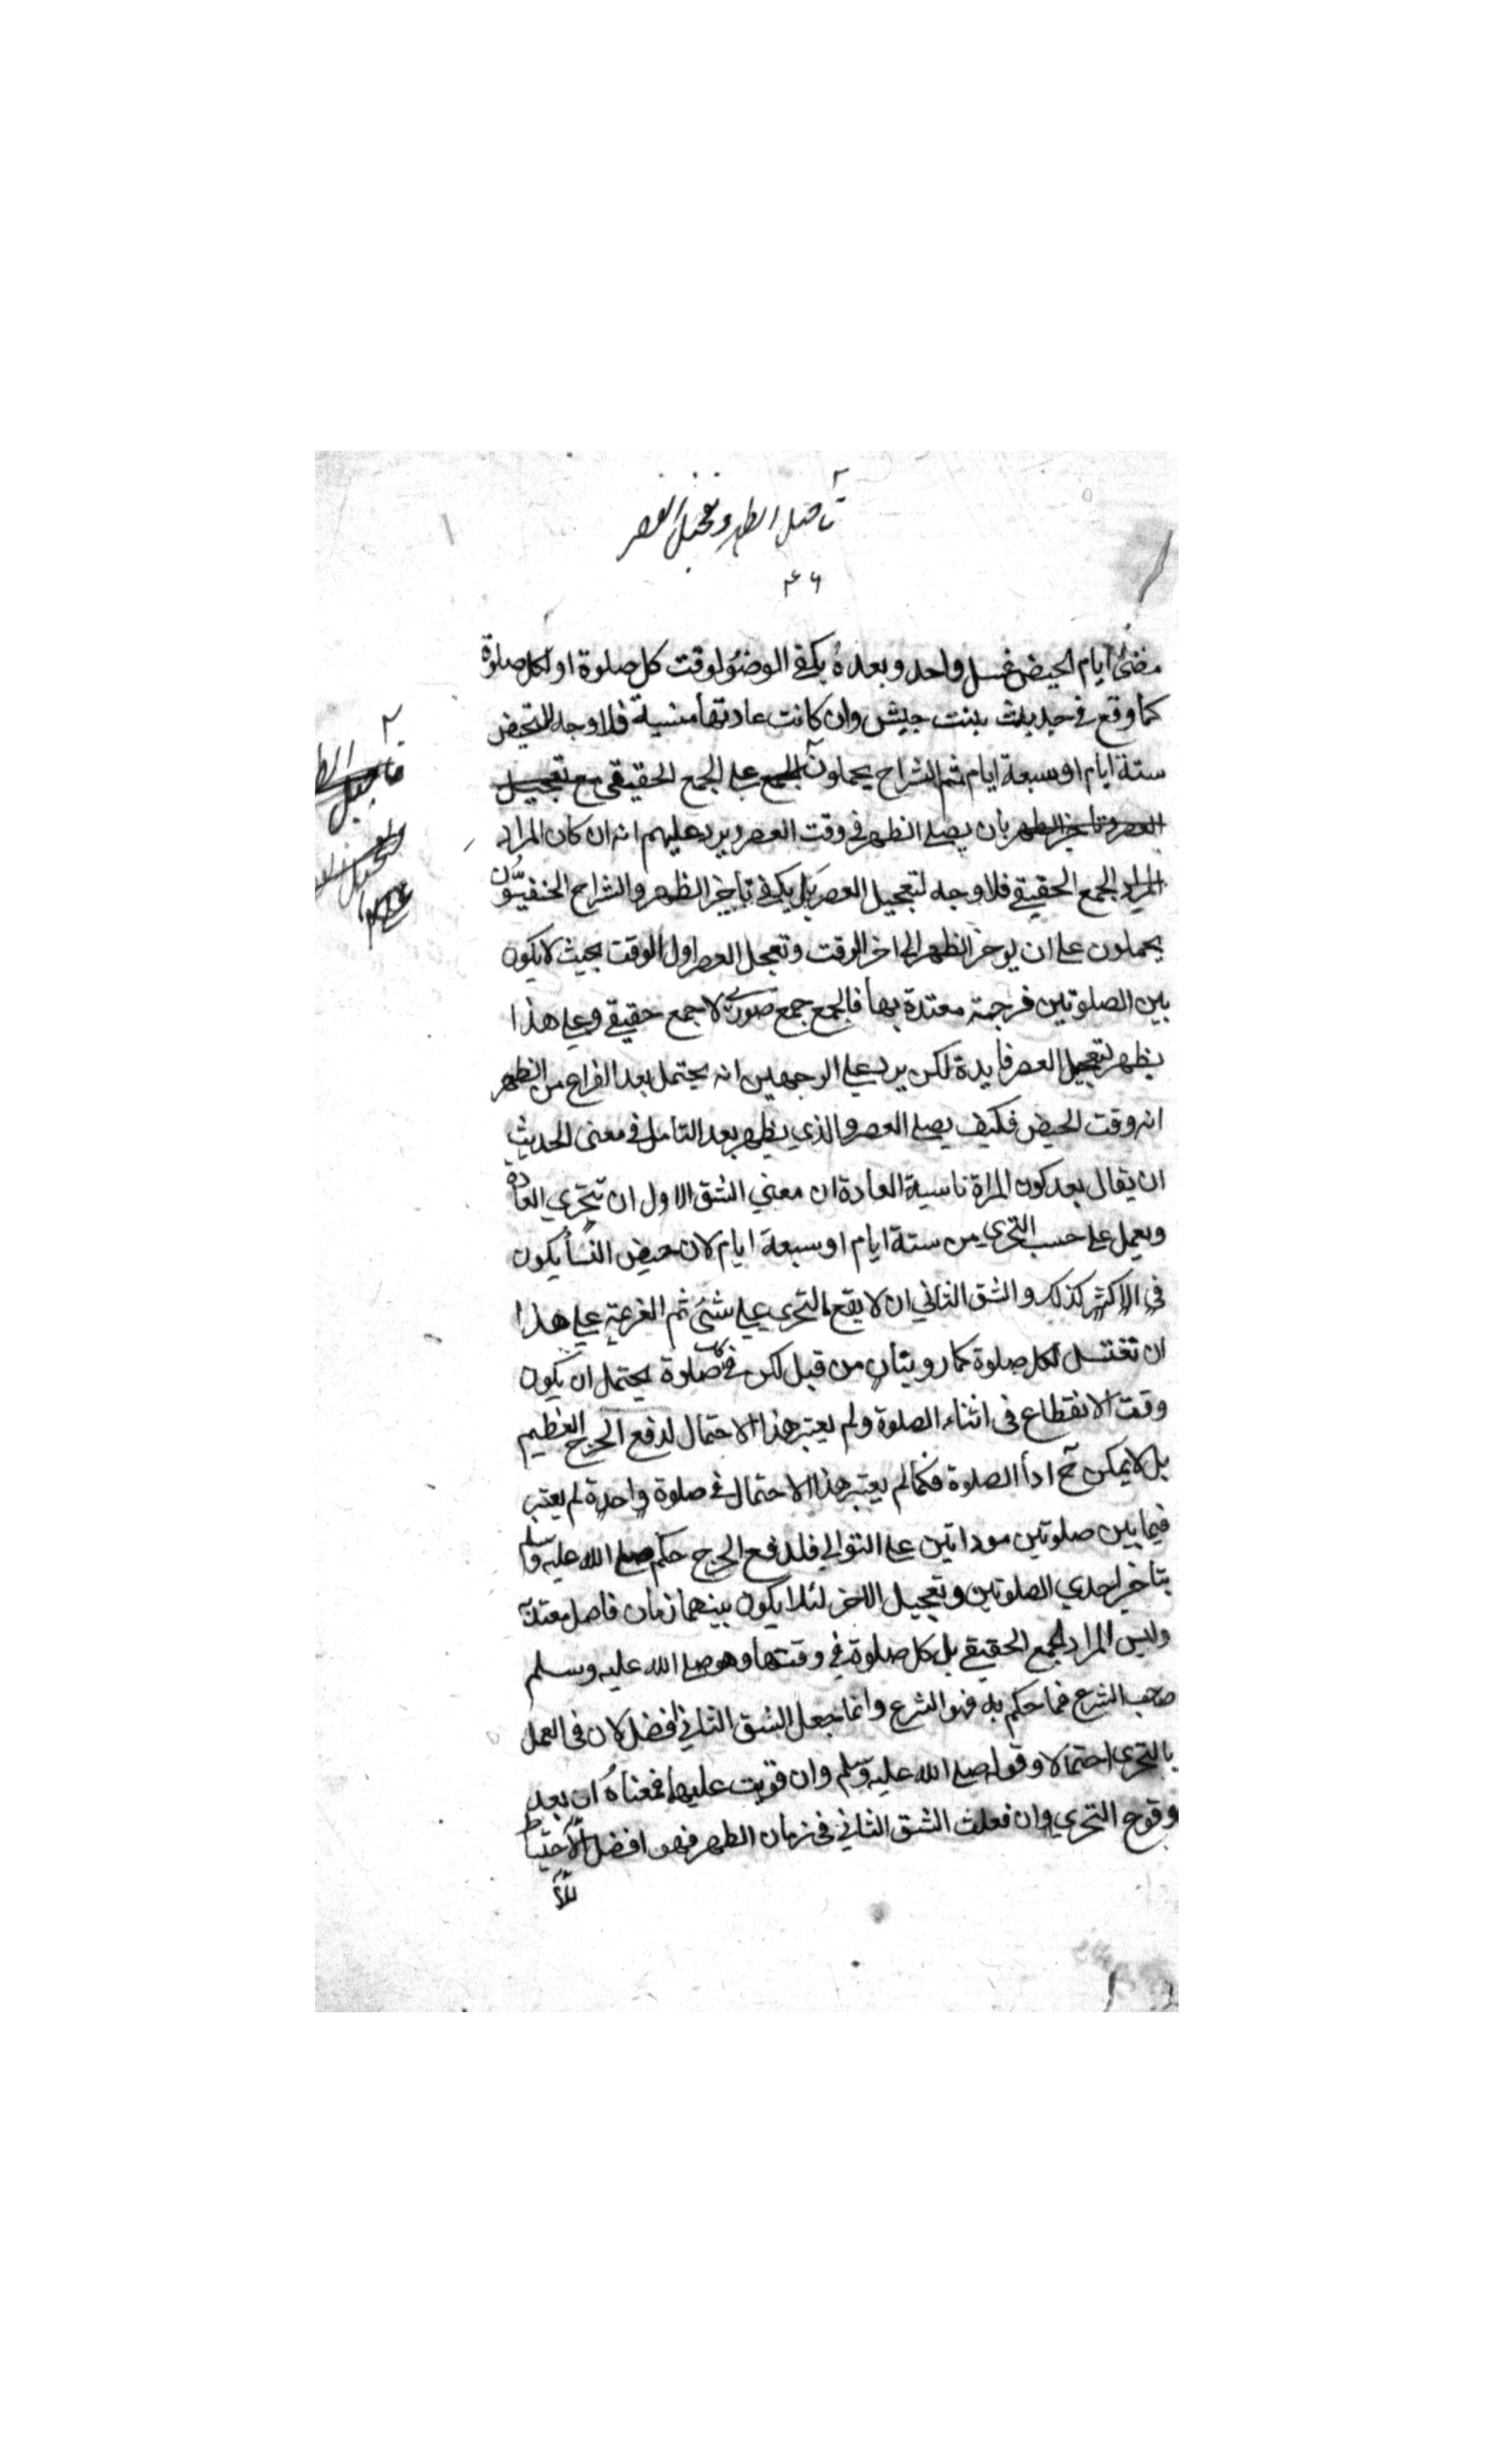 تأخير الظهر وتعجيل العصر
٤٦
مضئ ايام الحيض غسل واحد و بعده يكفي الوضوُ لوقت كل صلوة او لكل صلوة
كما وقع في حديث بنت جيش وان كانت عادتها منسية فلا وجه للتحيض
ستة ايام او سبعة ايام ثم الشراح يحملون الجمع على الجمع الحقيقي مع تعجيل
العصر وتاخير الظهر بان يصلي الظهر في وقت العصر ويرد عليهم انه ان كان المراد
المراد الجمع الحقيقي فلا وجه لتعجيل العصر بل يكفي تاخير الظهر والشراح الحنفيّون
يحملون على ان يوخر الظهر الى اخر الوقت وتعجل العصر اول الوقت بحيث لا يكون
بين الصلوتين فرجة معتدة بها فالجمع جمع صوري لا جمع حقيقي وعلي هذا
يظهر لتعجيل العصر فايدة لكن يرد علي الوجهين انه يحتمل بعد الفراغ من الظهر
انه وقت الحيض فكيف يصلي العصر والذي يظهر بعد التامل في معنى الحديث
ان يقال بعد كون المراة ناسية العادة ان معني الشق الاول ان تتحري العادة
ويعمل علي حسب التحري من ستة ايام او سبعة ايام لان حيض النسأ يكون
في الاكثر كذلك والشق الثاني ان لا يقع التحري علي شئ ثم العزيمة علي هذا
ان تغتسل لكل صلوة كما رويناه من قبل لكن في كل صلوة يحتمل ان يكون
وقت الانقطاع في اثناء الصلوة ولم يعتبر هذا الاحتمال لدفع الحرج العظيم
بل لا يمكن ح ادأ الصلوة فكما لم يعتبر هذا الاحتمال في صلوة واحدة لم يعتبر
فيما بين صلوتين موداتين على التوالي فلدفع الحرج حكم صلى الله عليه وسلم
بتاخير احدي الصلوتين وتعجيل الاخر لئلا يكون بينهما زمان فاصل معتد
وليس المراد الجمع الحقيقي بل كل صلوة في وقتها وهو صلى الله عليه وسلم
صاحب الشرع فما حكم به فهو الشرع وانما جعل الشق الثاني افضل لان في العمل
بالتحري احتمالا وقوله صلى الله عليه وسلم وان قويت عليها فمعناه ان بعد
وقوع التحري وان فعلت الشق الثاني في زمان الطهر فهو افضل لاحتياط